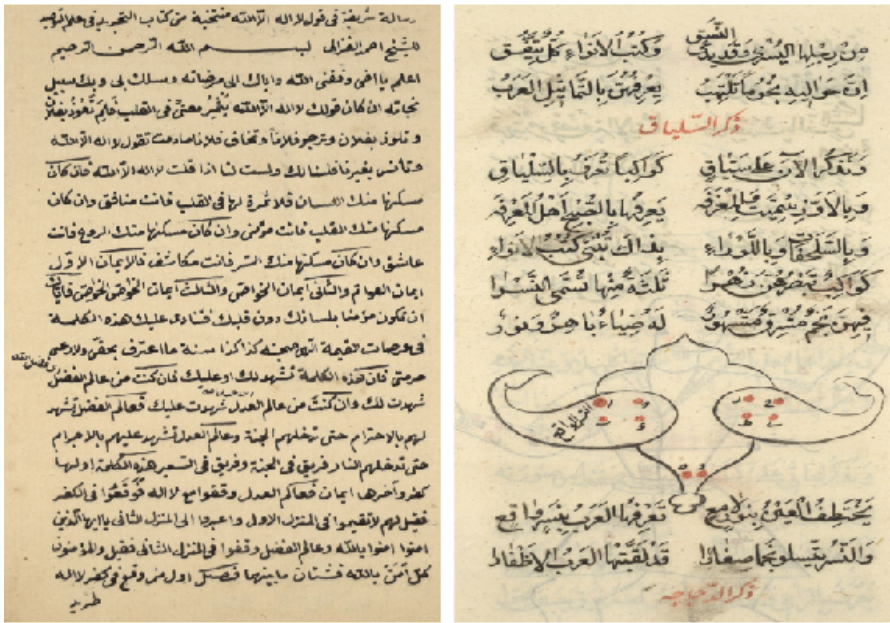 رسالة شريفة في قول لا اله الا الله منتخبة من كتاب التجريد في علم التوحيد
للشيخ احمد الغزالي بسم الله الرحمن الرحيم
اعلم يا اخي وفقني الله واياك الى مرضاته وسلك بي وبك سبيل
نجاته ان كان قولك لا اله الا الله يثمر معنى في القلب فلم تعوذ بفلان
وتلوذ بفلان وترجو فلانا وتخاف فلانا تقول لا اله الا الله
وتأنس بغيرنا فلسنا لك ولست لنا اذا قلت لا اله الا الله فان كان
مسكنها منك اللسان فلا ثمرة لها في القلب فانت منافق وان كان
مسكنها منك القلب فانت مؤمن وان كان مسكنها منك الروح فانت
عاشق وان كان مسكنها منك السر فانت مكاشف فالايمان الاول
ايمان العوام والثاني ايمان الخواص والثالث ايمان خواص الخواص فاياك
ان تكون مؤمنا بلسانك دون قلبك فتنادي عليك هذه الكلمة
في عرصات القيمة الهي صحبته كذا كذا سنة فما اعترف بحقي ولا رعى
حرمتي فان هذه الكلمة تشهد لك او عليك فان كنت من عالم الفضل
شهدت لك وان كنت من عالم العدل شهدت عليك فعالم الفضل تشهد
لهم بالاحترام حتى تدخلهم الجنة وعالم العدل تشهد عليهم بالاجرام
حتى تدخلهم النار فريق في الجنة وفريق في السعير هذه الكلمة اولها
كفر وآخرها ايمان فعالم العدل وقفوا مع لا اله فوقعوا في الكفر
فقيل لهم لا تقيموا في المنزل الاول واعبروا الى المنزل الثاني يا ايها الذين
امنوا امنوا بالله وعالم الفضل وقفوا في المنزل الثاني فقيل والمؤمنون
كل آمن بالله فشتان ما بينهما فصل اول من وقع في كفر لا اله
طريد
من رجلها اليسرى وقد وكتب الانواء كل يتفق
ان حواليه نجوما تلتهب يعرفهن بالتماثيل العرب
ذكر السلياق
ونذكر الآن على سياق كواكبا تعرف بالسلياق
وبالاوز سميت والمغرفه يعرفها بالصبح اهل المعرفه
وبالسلحفا وباللوزاء بذاك تنبي كتب الانواء
كواكب تبصرهن زهرا ثلثة منها تسمى النسرا
فيهن نجم مشرق مشهور له ضياء باهر ونور
النسر الواقع
يختطف العين بنور لامع تعرفه العرب بنسر واقع
والنسر يتسلو نجما صغارا قد لقبتها العرب الاظفارا
ذكر الدجاجه